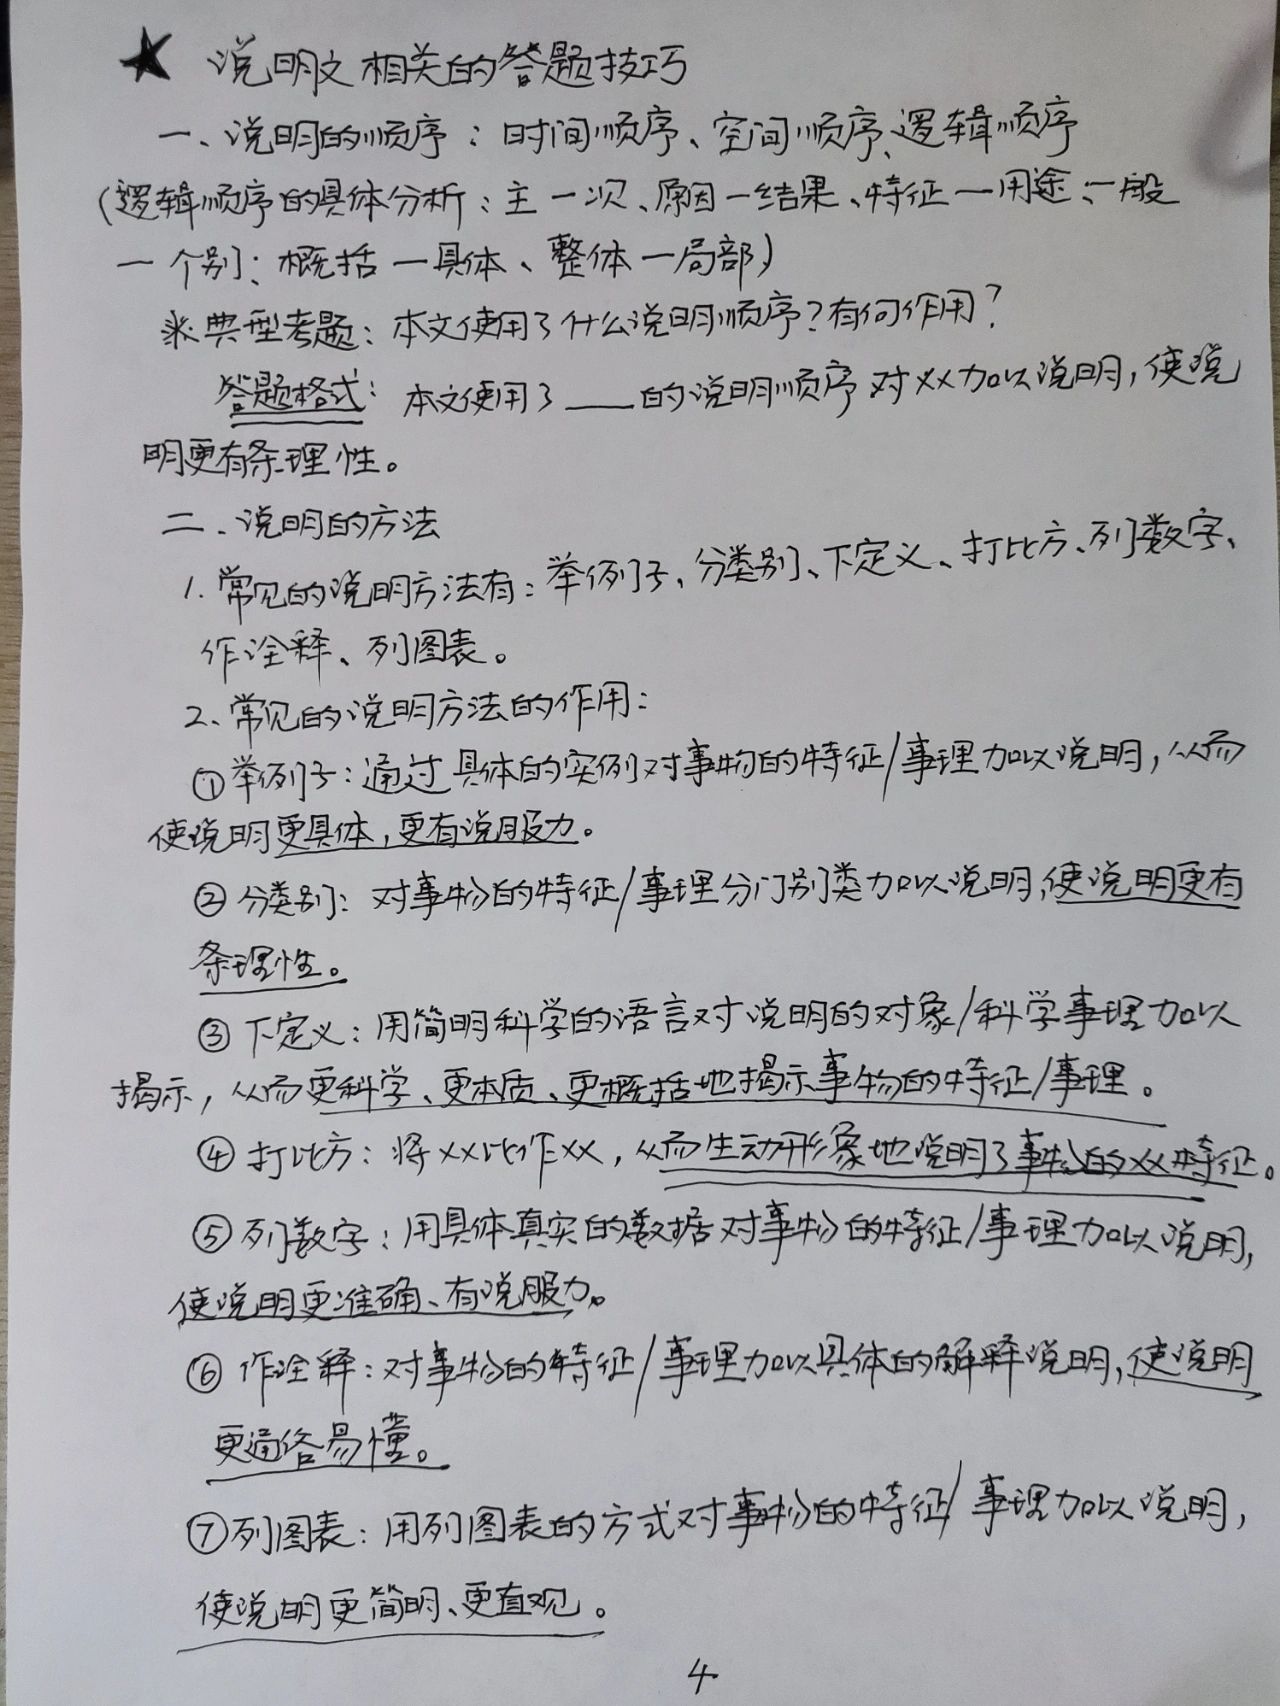 ★ 说明文相关的答题技巧
一、说明的顺序：时间顺序、空间顺序、逻辑顺序
(逻辑顺序的具体分析：主一次、原因一结果、特征一用途、一般
一个别；概括一具体、整体一局部)
※典型考题：本文使用了什么说明顺序?有何作用?
答题格式：本文使用了____的说明顺序对××加以说明,使说
明更有条理性。
二、说明的方法
1.常见的说明方法有：举例子、分类别、下定义、打比方、列数字、
作诠释、列图表。
2、常见的说明方法的作用：
①举例子：通过具体的实例对事物的特征/事理加以说明,从而
使说明更具体,更有说服力。
②分类别：对事物的特征/事理分门别类加以说明,使说明更有
条理性。
③下定义：用简明科学的语言对说明的对象/科学事理加以
揭示,从而更科学、更本质、更概括地揭示事物的特征/事理。
④打比方：将××比作××,从而生动形象地说明了事物的××特征。
⑤列数字：用具体真实的数据对事物的特征/事理加以说明,
使说明更准确、有说服力。
⑥作诠释：对事物的特征/事理加以具体的解释说明,使说明
更通俗易懂。
⑦列图表：用列图表的方式对事物的特征/事理加以说明,
使说明更简明、更直观。
4